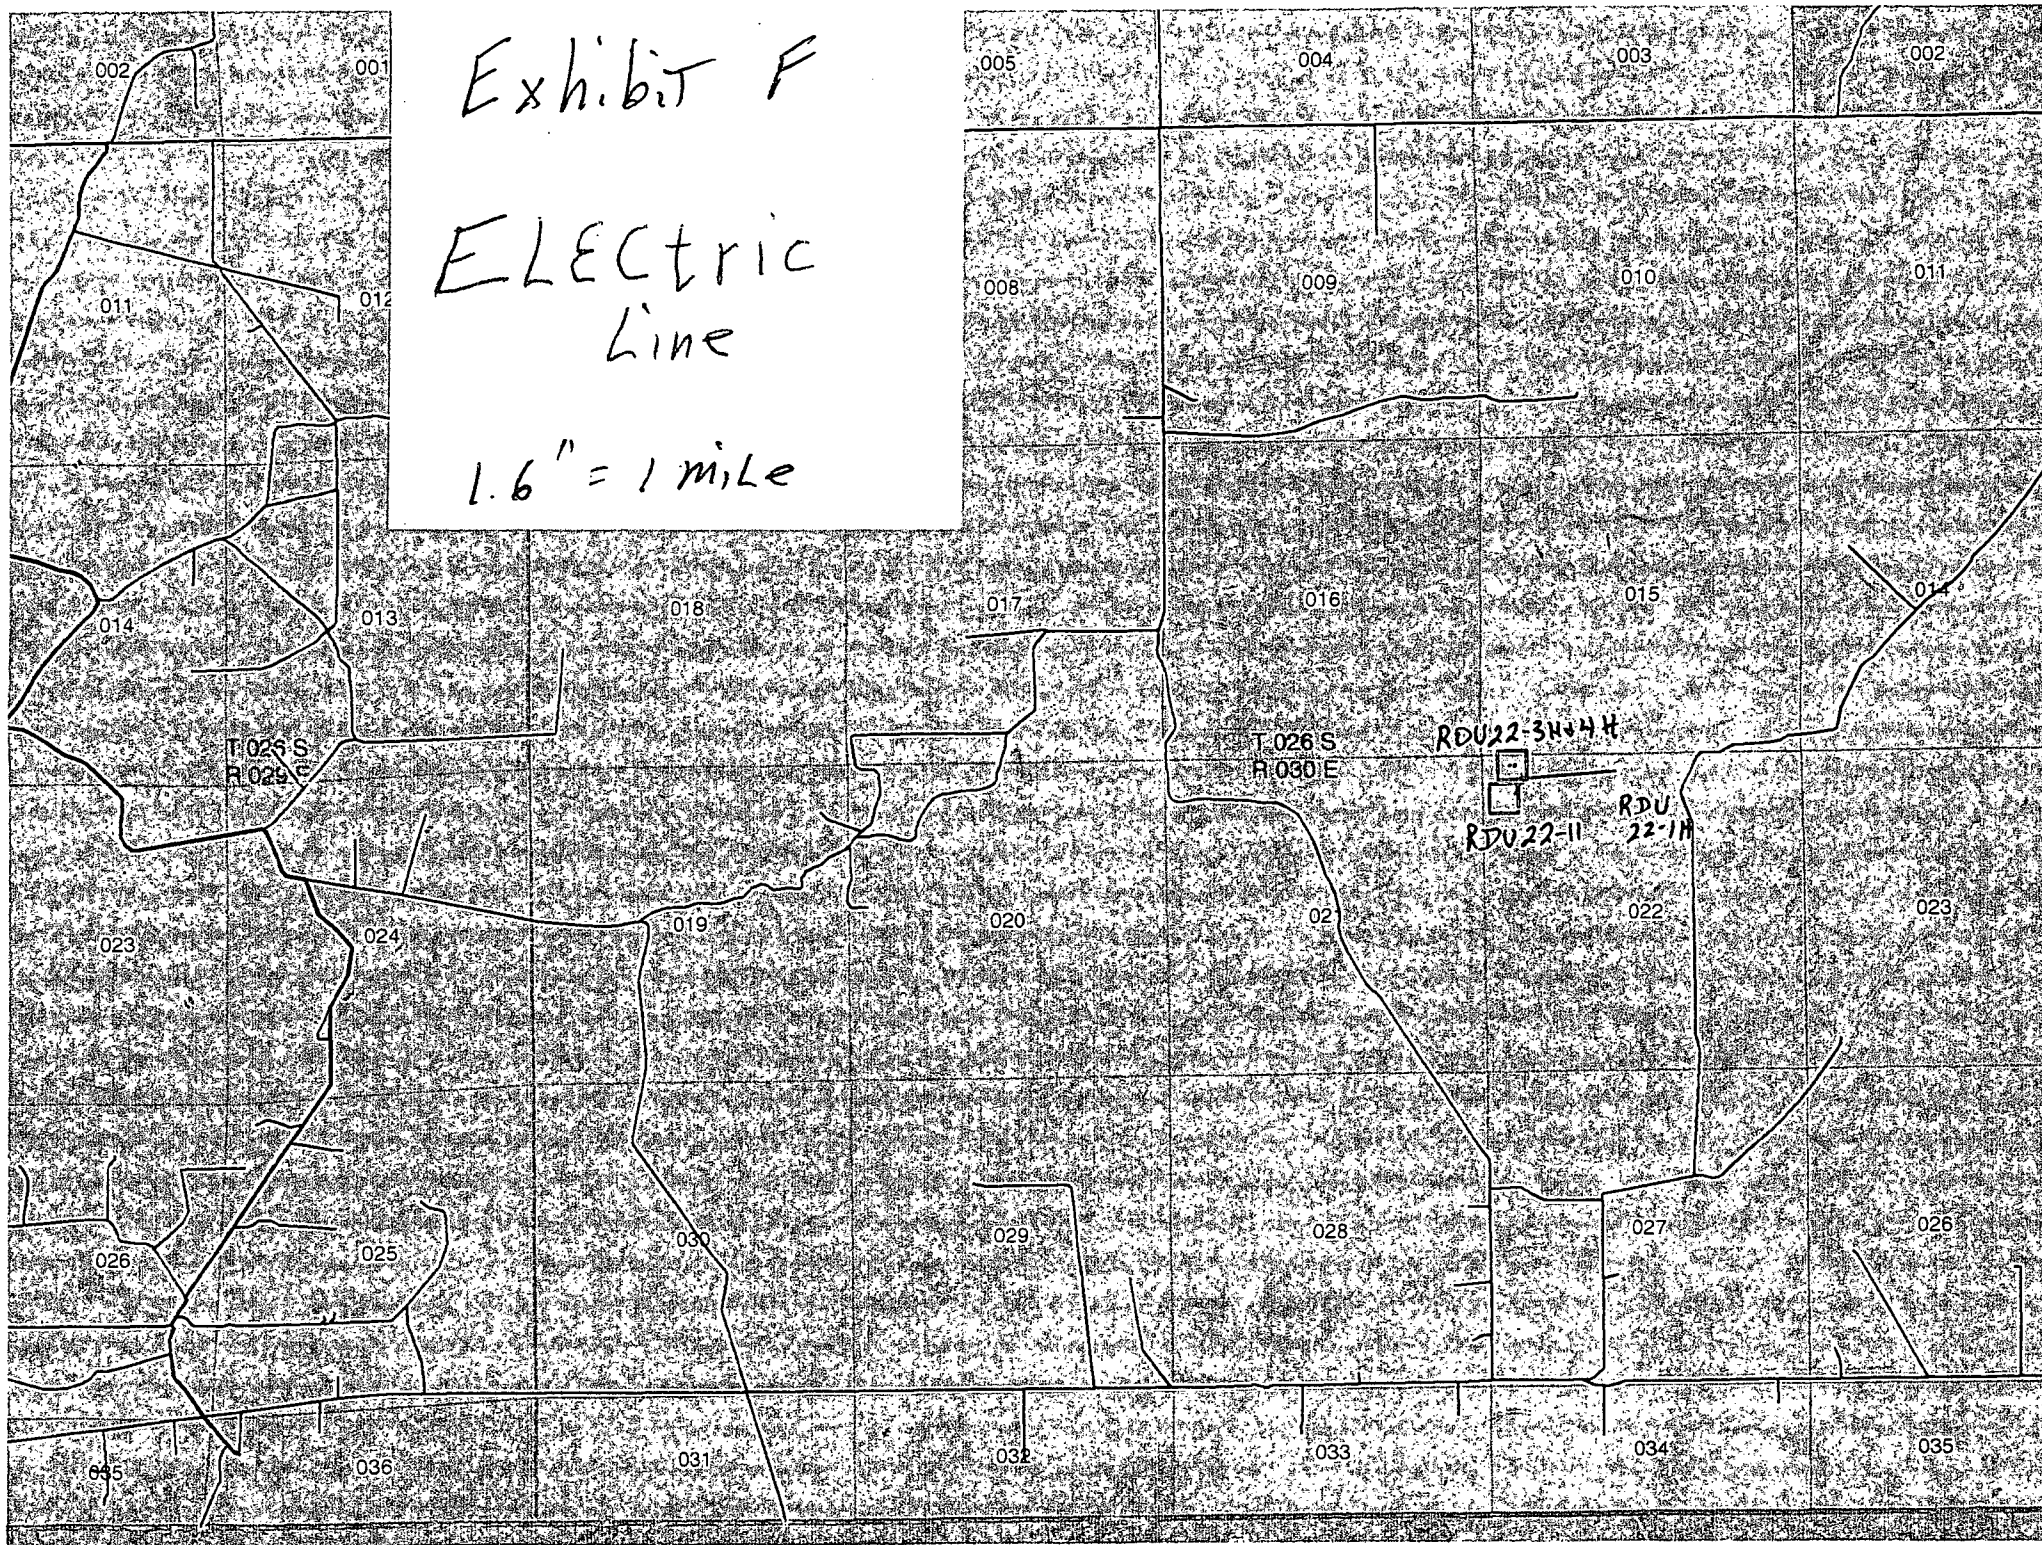 Exhibit F
ELECtric
Line
1.6" = 1 mile
002
001
005
004
003
002
011
012
008
009
010
011
014
013
018
017
016
015
014
T 026 S
R 029 E
T 026 S
R 030 E
RDU 22-3H+4H
RDU 22-11
RDU
22-1H
023
024
019
020
02
022
023
026
025
030
029
028
027
026
035
036
031
032
033
034
035